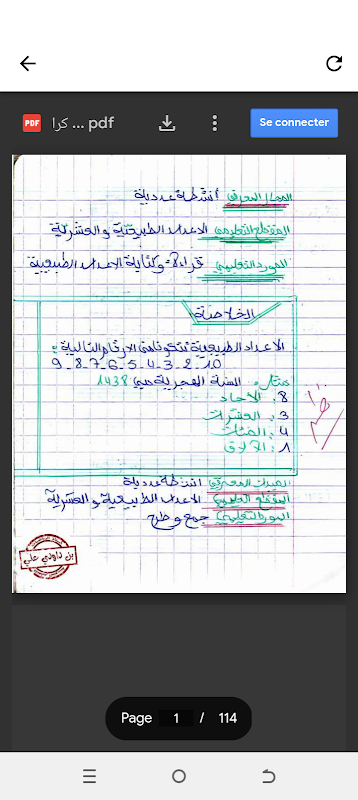 PDF
كرا ... pdf
Se connecter
المجال المعرفي أنشطة عددية
المقطع التعليمي الاعداد الطبيعية والعشرية
المورد التعليمي قراءة وكتابة الاعداد الطبيعية
الخلاصة
الاعداد الطبيعية تتكون من الارقام التالية:
9_8_7_6_5_4_3_2_10
مثال: السنة الهجرية هي 1438
8: الآحاد
3: العشرات
4: المئات
1: الآلاف
انشطة عددية
المقطع التعليمي الاعداد الطبيعية والعشرية
المورد التعليمي جمع وطرح
بن داودي علي
Page 1 / 114